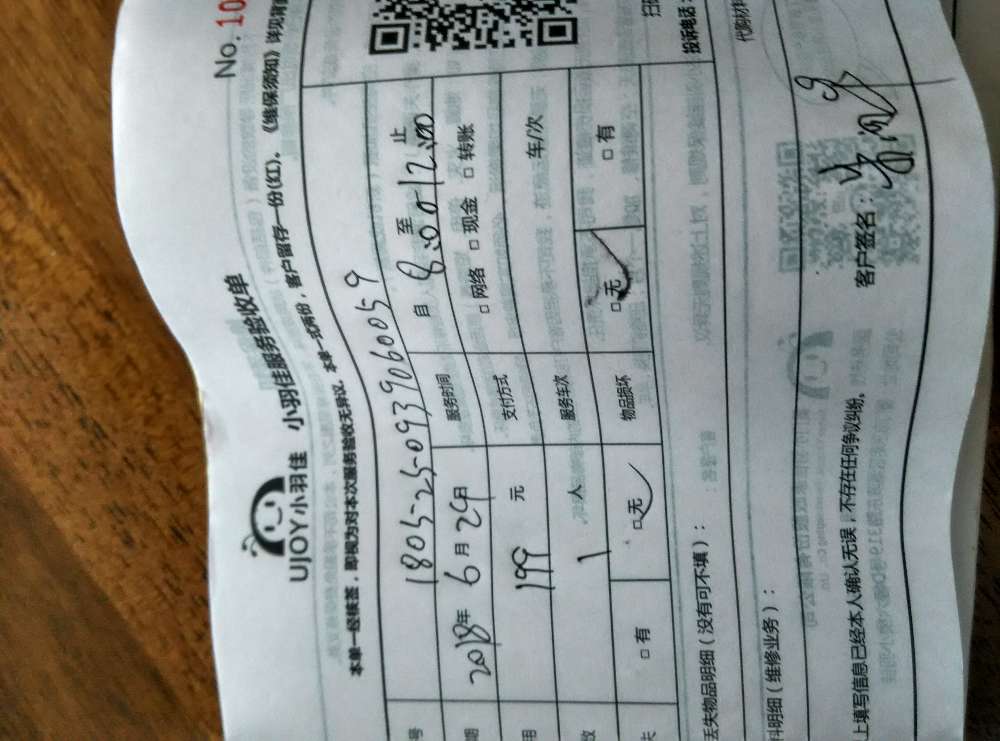 No. 10
UJOY小羽佳 小羽佳服务验收单
本单一经核签，即视为对本次服务验收无异议。本单一式两份，客户留存一份(红)。《维保须知》详见背
号 1805-25-09396060059
期 2018年6月29日 服务时间 自 8:00 至 12:00 止
用 199 元 支付方式 □网络 □现金 □转账
数 1 人 服务车次 车/次
失 □有 □无 物品损坏 □无 □有
丢失物品明细（没有可不填）：
料明细（维修业务）：
上填写信息已经本人确认无误，不存在任何争议纠纷。
客户签名：
扫
投诉电话：
代购材料